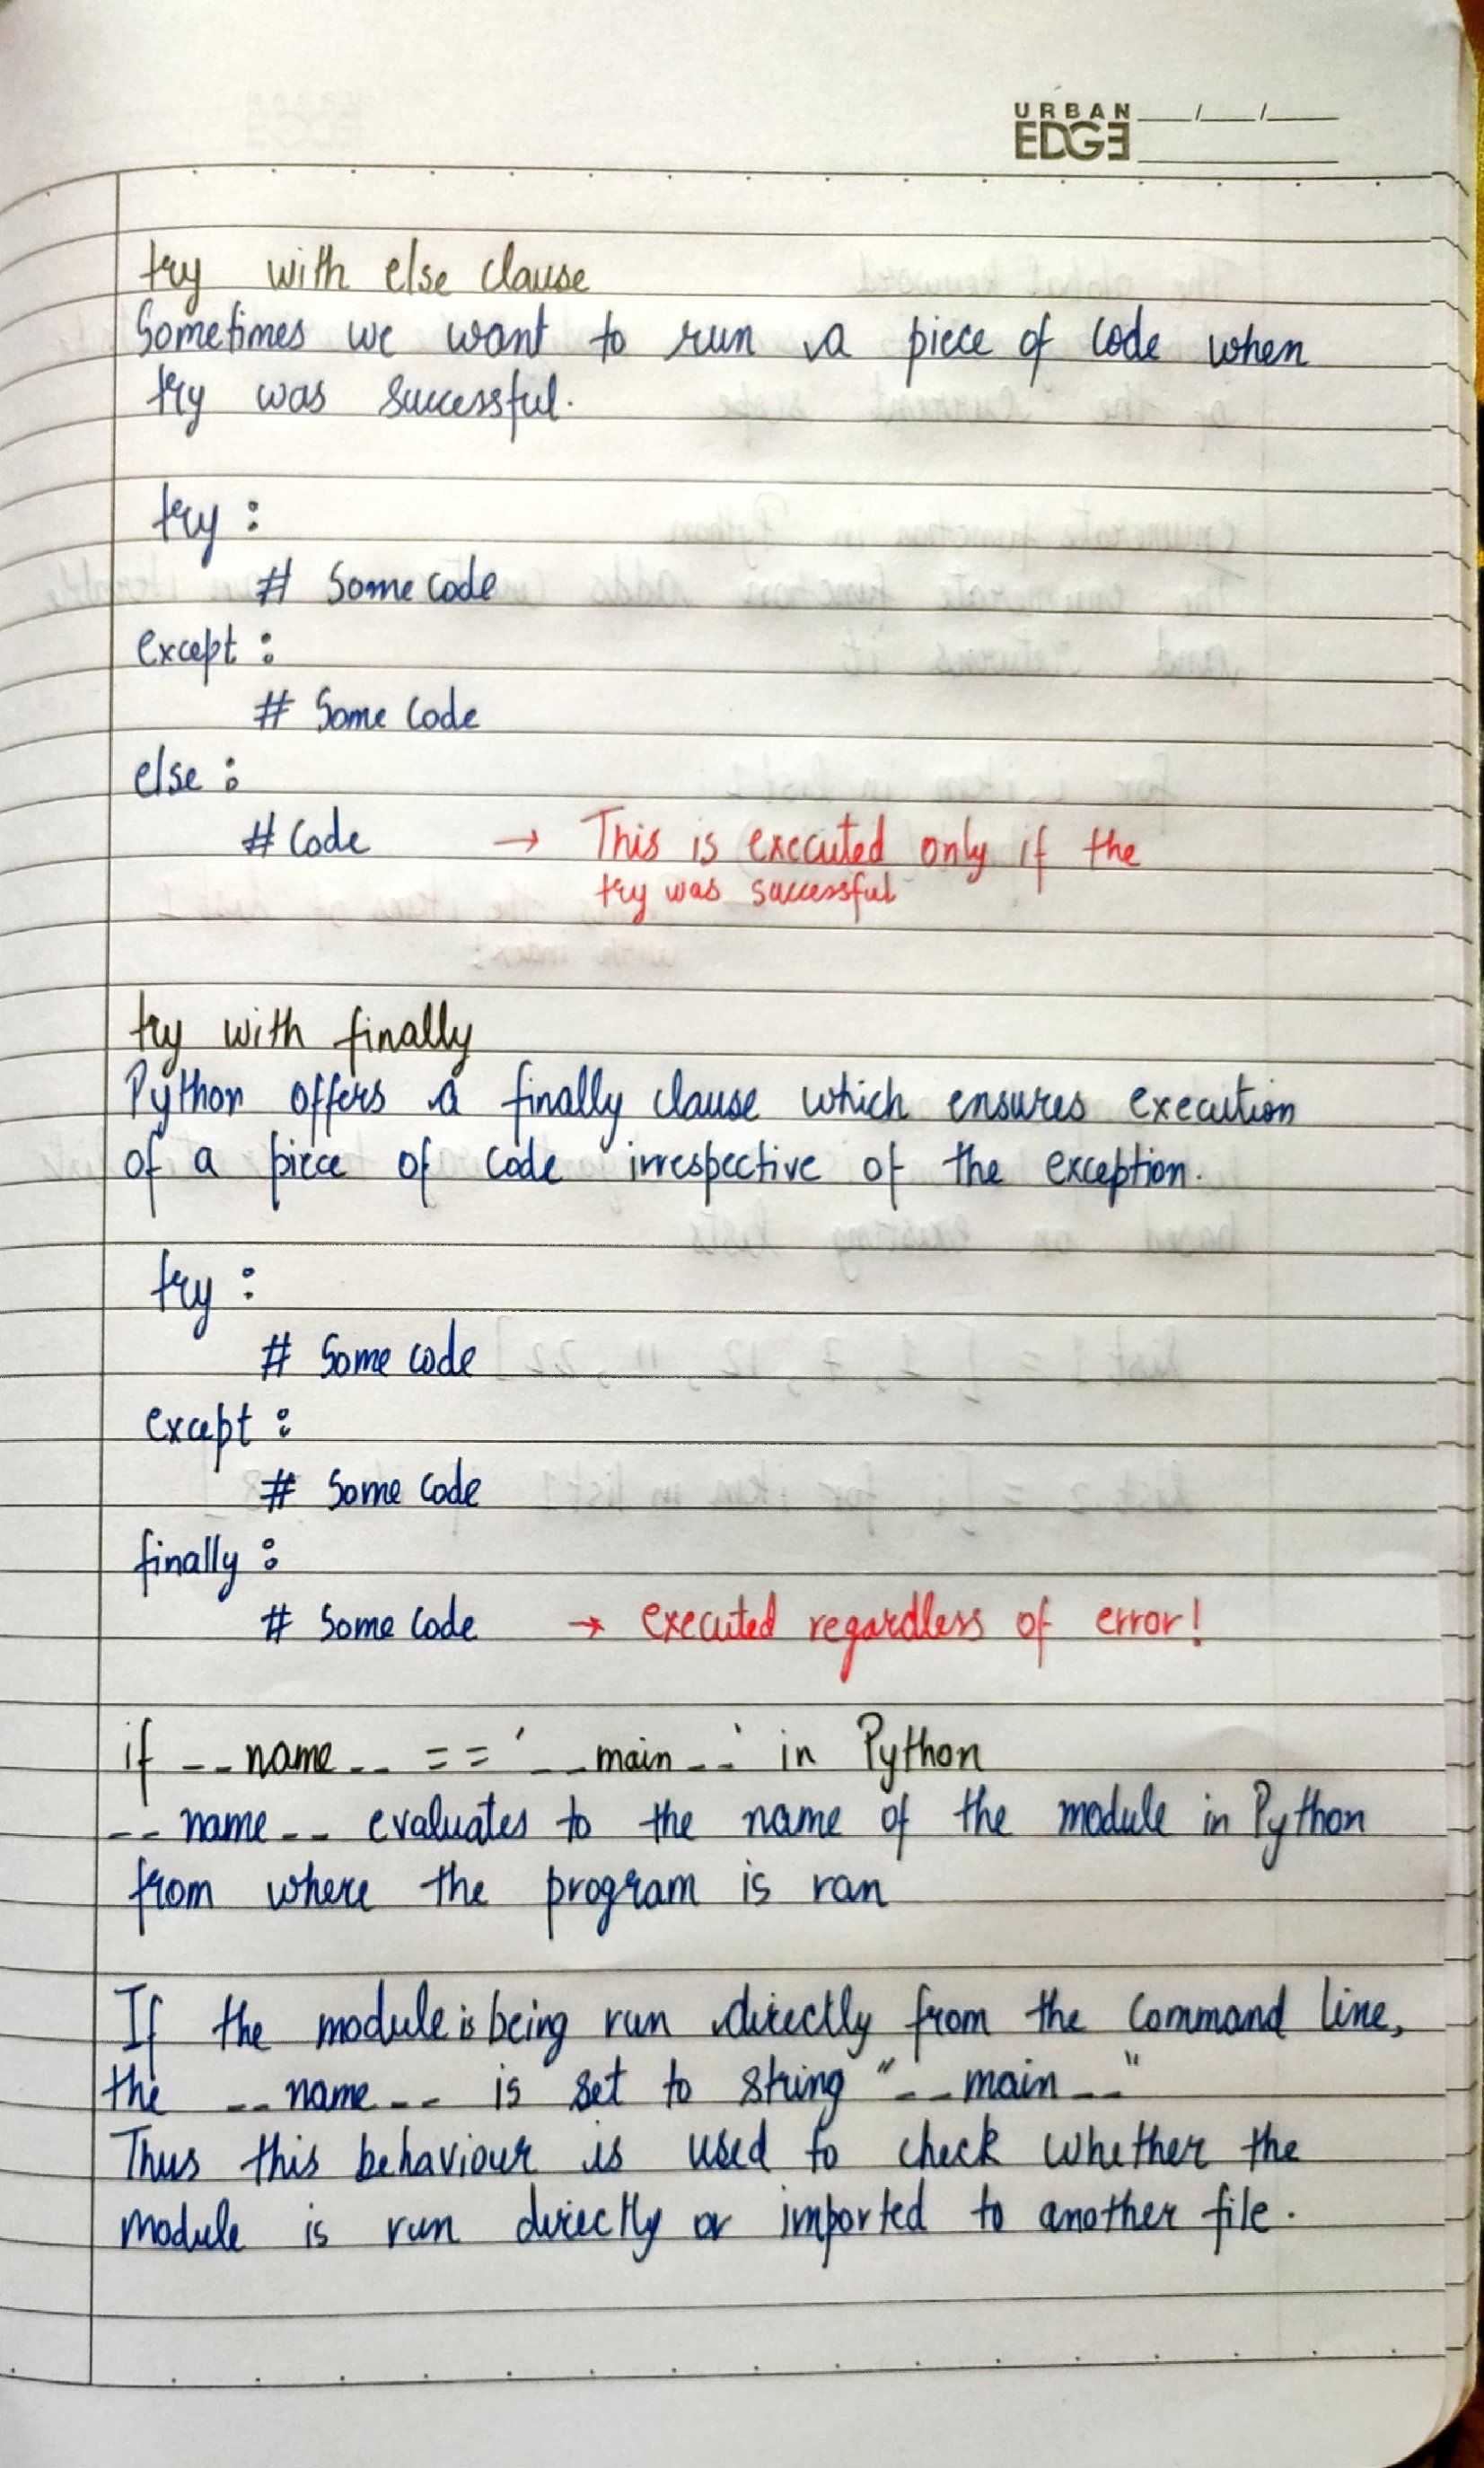 URBAN
EDGE
try with else clause
Sometimes we want to run a piece of code when
try was successful.
try :
# Some code
except :
# Some code
else :
# Code → This is executed only if the
try was successful
try with finally
Python offers a finally clause which ensures execution
of a piece of code irrespective of the exception.
try :
# Some code
except :
# Some code
finally :
# Some code → executed regardless of error!
if __name__ == '__main__' in Python
__name__ evaluates to the name of the module in Python
from where the program is ran
If the module is being run directly from the command line,
the __name__ is set to string "__main__"
Thus this behaviour is used to check whether the
module is run directly or imported to another file.